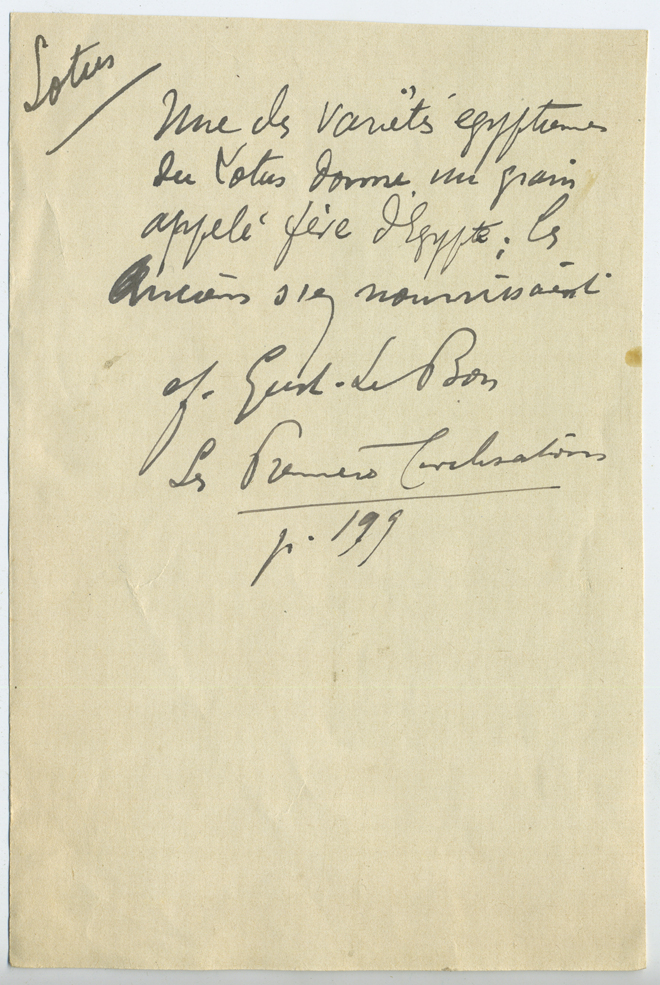 Lotus
Une des variétés egyptiennes
du Lotus donne un grain
appelé fève d'Egypte ; les
Anciens s'en nourrissaient
cf. Gust. Le Bon
Les Premières Civilisations
p. 199